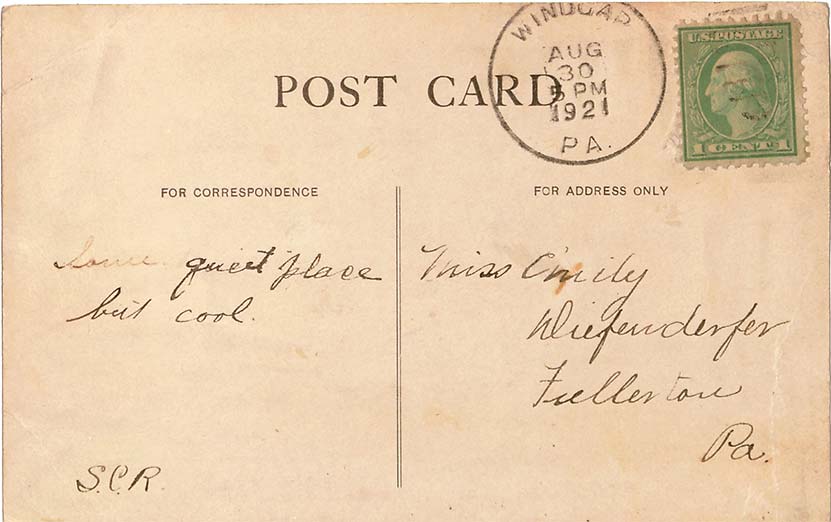 POST CARD
WINDGAP
AUG
30
5 PM
1921
PA.
U.S. POSTAGE
1 CENT 1
FOR CORRESPONDENCE
FOR ADDRESS ONLY
Some quiet place
but cool.
S.C.R.
Miss Emily
Diefenderfer
Fullerton
Pa.